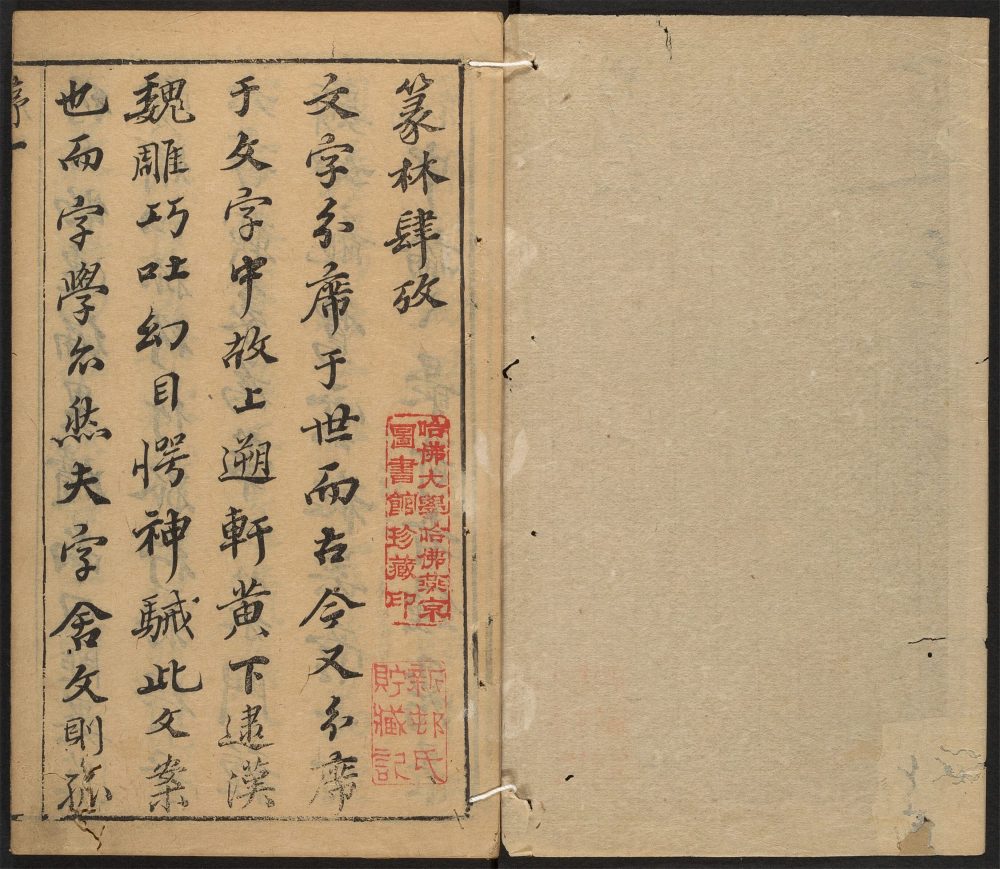 篆林肆攷
文字分席于世而古今又分席
于文字中故上遡軒黄下逮漢
魏雕巧吐幻目愕神駴此文案
也而字學亦然夫字舍文則孤
序一
哈佛大學哈佛燕京
圖書館珍藏印
新邨氏
貯藏記